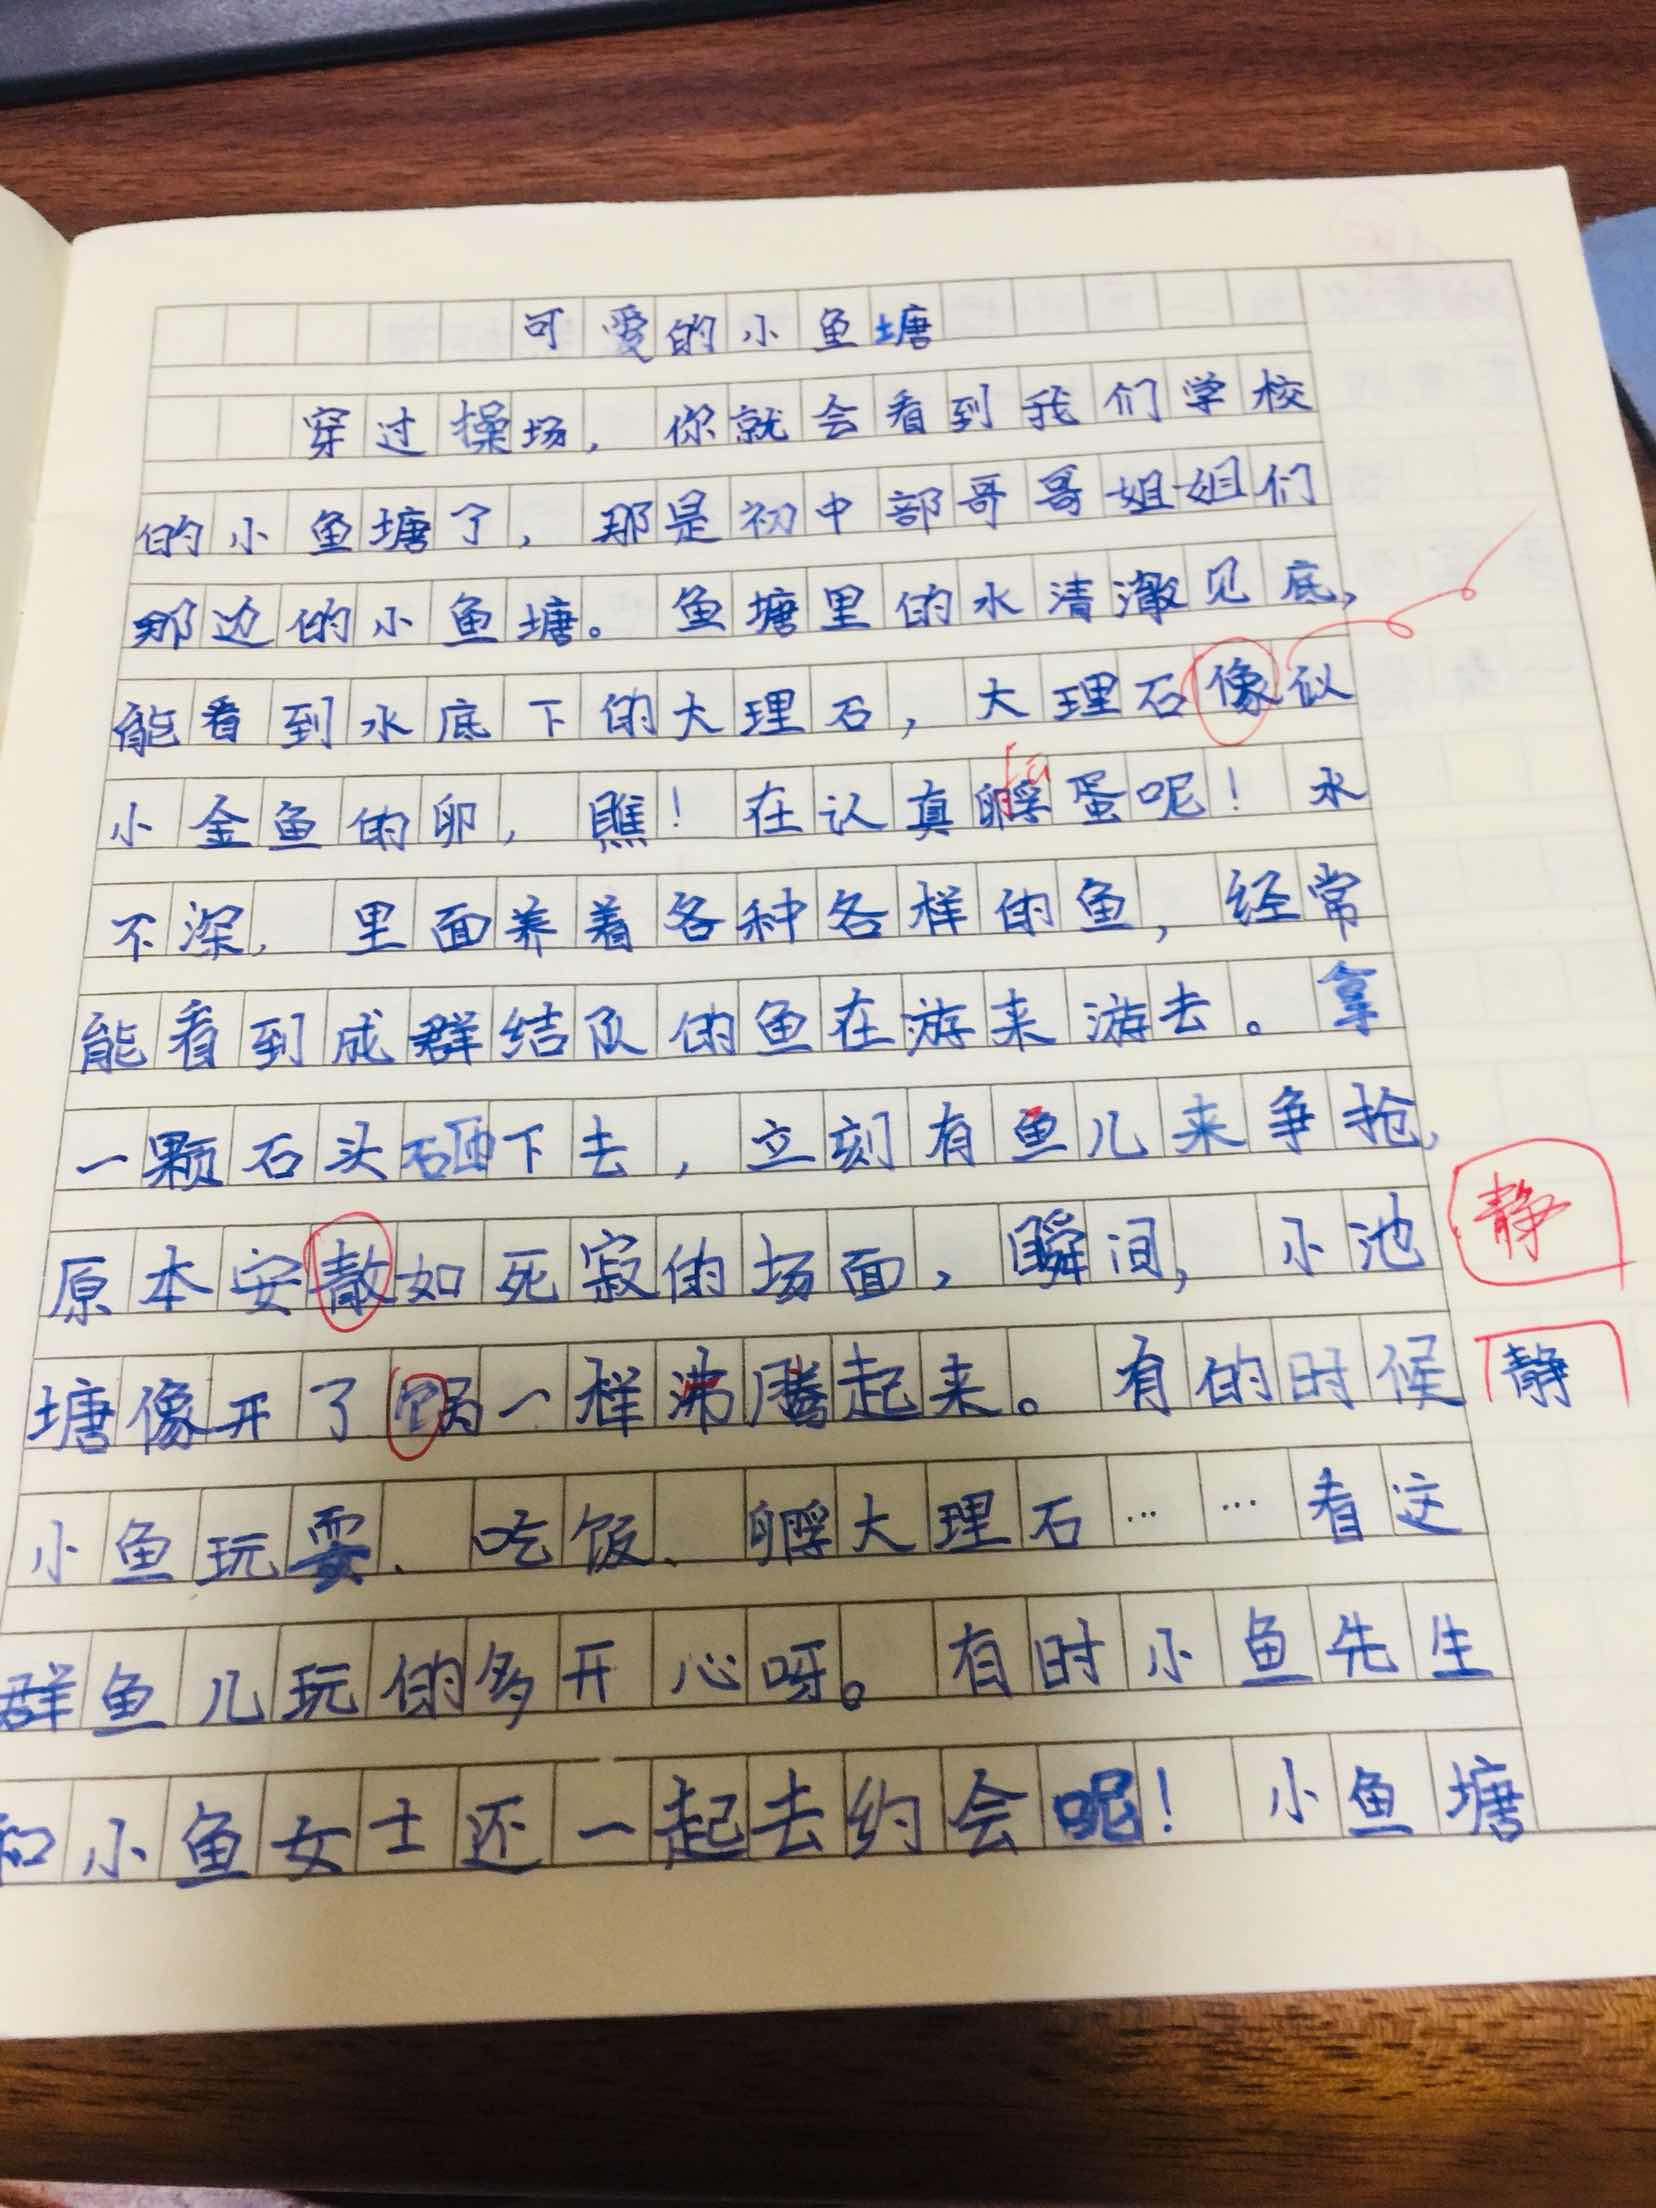 可爱的小鱼塘
穿过操场，你就会看到我们学校
的小鱼塘了，那是初中部哥哥姐姐们
那边的小鱼塘。鱼塘里的水清澈见底，
能看到水底下的大理石，大理石像似
小金鱼的卵，瞧！在认真孵蛋呢！水
不深，里面养着各种各样的鱼，经常
能看到成群结队的鱼在游来游去。拿
一颗石头砸下去，立刻有鱼儿来争抢，
原本安如死寂的场面，瞬间，小池
静
塘像开了锅一样沸腾起来。有的时候
静
小鱼玩耍、吃饭、孵大理石……看这
群鱼儿玩的多开心呀。有时小鱼先生
和小鱼女士还一起去约会呢！小鱼塘